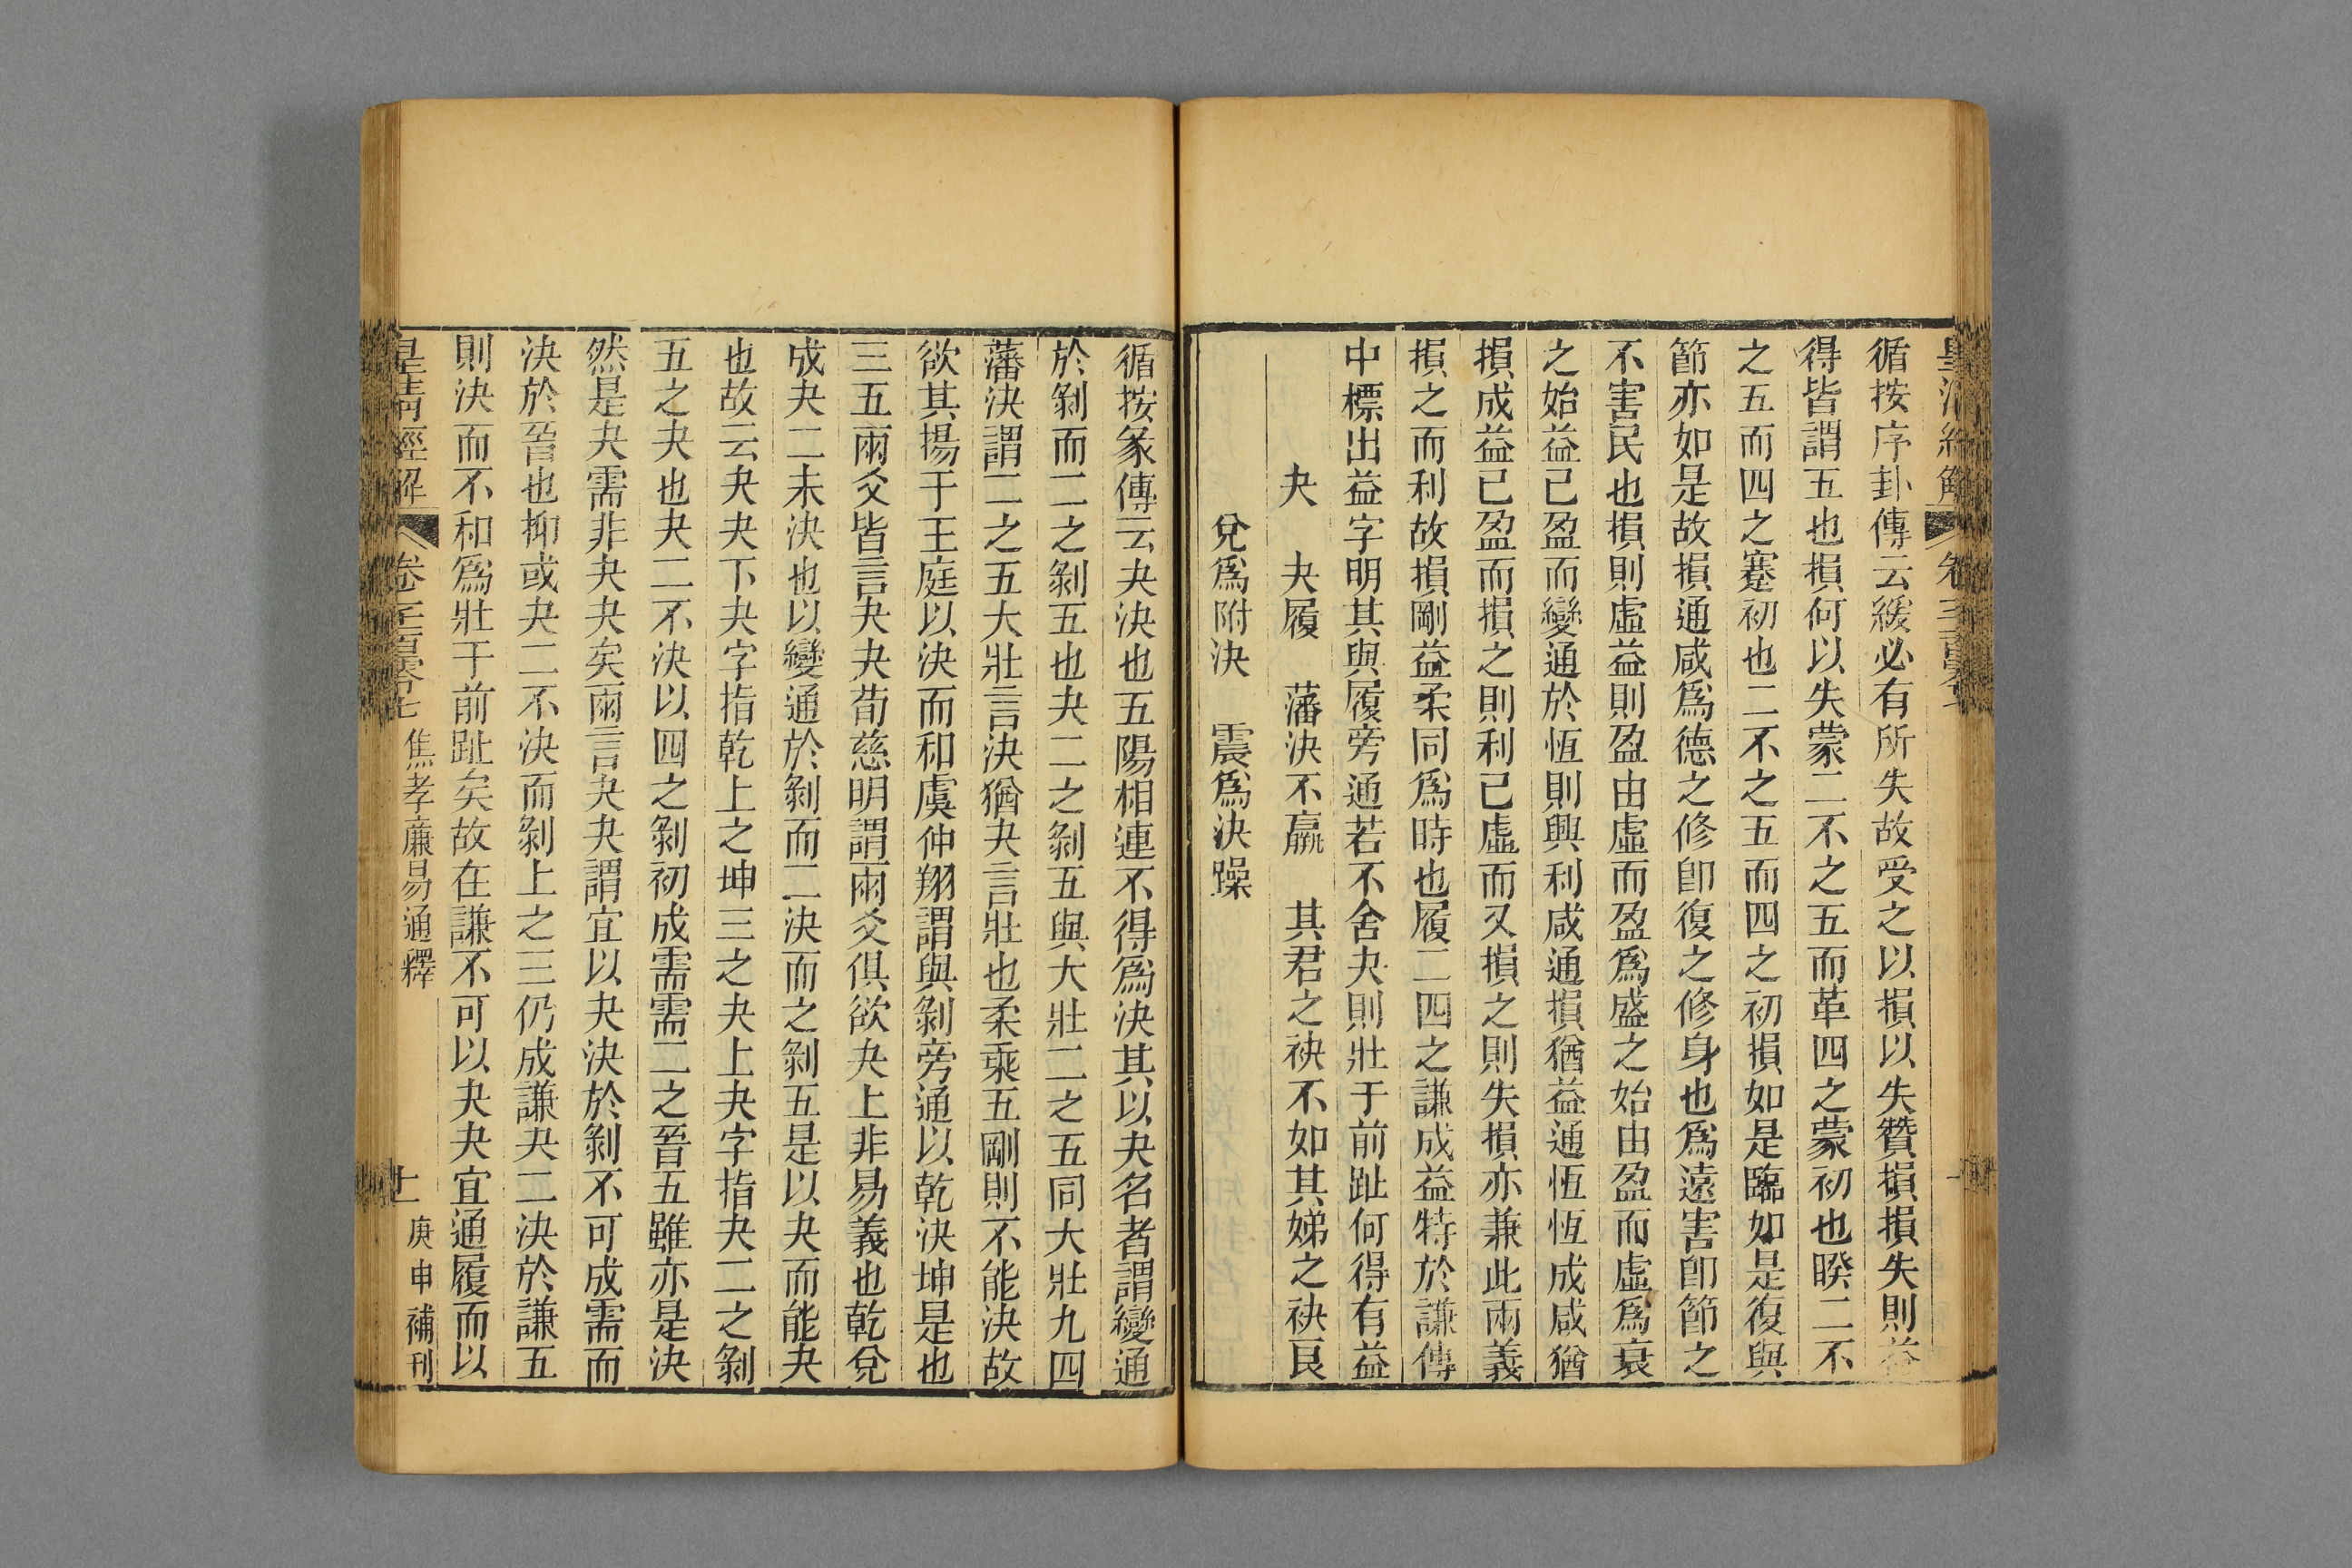 循按序卦傳云緩必有所失故受之以損以失贊損損失則益
得皆謂五也損何以失蒙二不之五而革四之蒙初也睽二不
之五而四之蹇初也二不之五而四之初損如是臨如是復與
節亦如是故損通咸爲德之修卽復之修身也爲遠害卽節之
不害民也損則虛益則盈由虛而盈爲盛之始由盈而虛爲衰
之始益已盈而變通於恆則興利咸通損猶益通恆恆成咸猶
損成益已盈而損之則利已虛而又損之則失損亦兼此兩義
損之而利故損剛益柔同爲時也履二四之謙成益特於謙傳
中標出益字明其與履旁通若不舍夬則壯于前趾何得有益
夬　夬履　藩決不羸　其君之袂不如其娣之袂艮
兌爲附決　震爲決躁
循按彖傳云夬決也五陽相連不得爲決其以夬名者謂變通
於剝而二之剝五也夬二之剝五與大壯二之五同大壯九四
藩決謂二之五大壯言決猶夬言壯也柔乘五剛則不能決故
欲其揚于王庭以決而和虞仲翔謂與剝旁通以乾決坤是也
三五兩爻皆言夬夬荀慈明謂兩爻俱欲夬上非易義也乾兌
成夬二未決也以變通於剝而二決而之剝五是以夬而能夬
也故云夬夬下夬字指乾上之坤三之夬上夬字指夬二之剝
五之夬也夬二不決以四之剝初成需需二之晉五雖亦是決
然是夬需非夬夬矣兩言夬夬謂宜以夬決於剝不可成需而
決於晉也抑或夬二不決而剝上之三仍成謙夬二決於謙五
則決而不和爲壯于前趾矣故在謙不可以夬夬宜通履而以
皇清經解　卷一千一百零七　焦孝廉易通釋　十一　庚申補刊